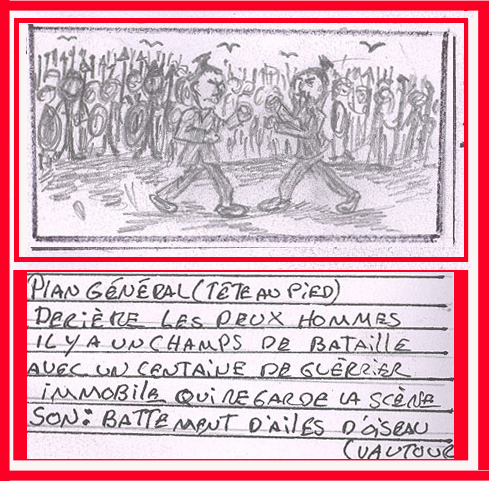 PLAN GÉNÉRAL (TÊTE AU PIED)
DERIÈRE LES DEUX HOMMES
IL Y A UN CHAMPS DE BATAILLE
AVEC UN CENTAINE DE GUÉRRIER
IMMOBILE QUI REGARDE LA SCÈNE
SON: BATTEMENT D'AILES D'OISEAU
(VAUTOUR